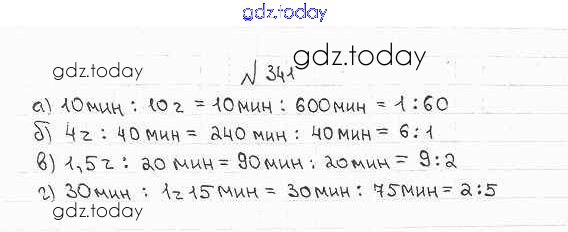 gdz.today
gdz.today
gdz.today № 341
а) 10 мин : 10 ч = 10 мин : 600 мин = 1 : 60
б) 4 ч : 40 мин = 240 мин : 40 мин = 6 : 1
в) 1,5 ч : 20 мин = 90 мин : 20 мин = 9 : 2
г) 30 мин : 1 ч 15 мин = 30 мин : 75 мин = 2 : 5
gdz.today